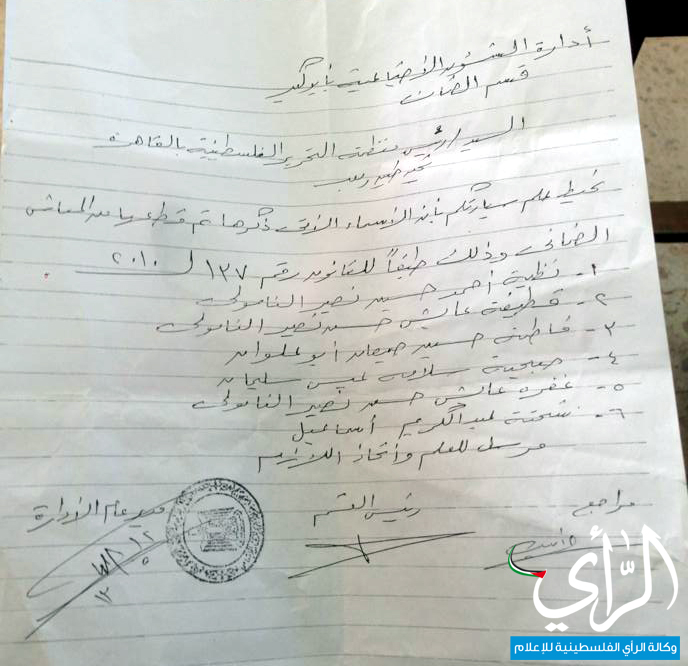 أدارة الشئون الأجتماعية بأبوكبير
قسم الضمان
السيد / رئيس منظمة التحرير الفلسطينية بالقاهرة
تحية طيبة وبعد
نحيط علم سيادتكم بأن الأسماء الأتى ذكرها تم قطعها من المعاش
الضمانى وذلك طبقاً للقانون رقم ١٣٧ لـ ٢٠١٠
١- نظيرة أحمد حسين نصير النامولى
٢- قطيفة عايش حسن نصير النامولى
٣- فاطمة حسين جمعان أبو علوان
٤- صبحية سلامة سليمان
٥- عايش حسن نصير النامولى
٦- عبد الكريم أسماعيل
مرسل للعلم وأتخاذ اللازم
مراجع
رئيس القسم
مدير عام الأدارة
الرأي
وكالة الرأي الفلسطينية للإعلام